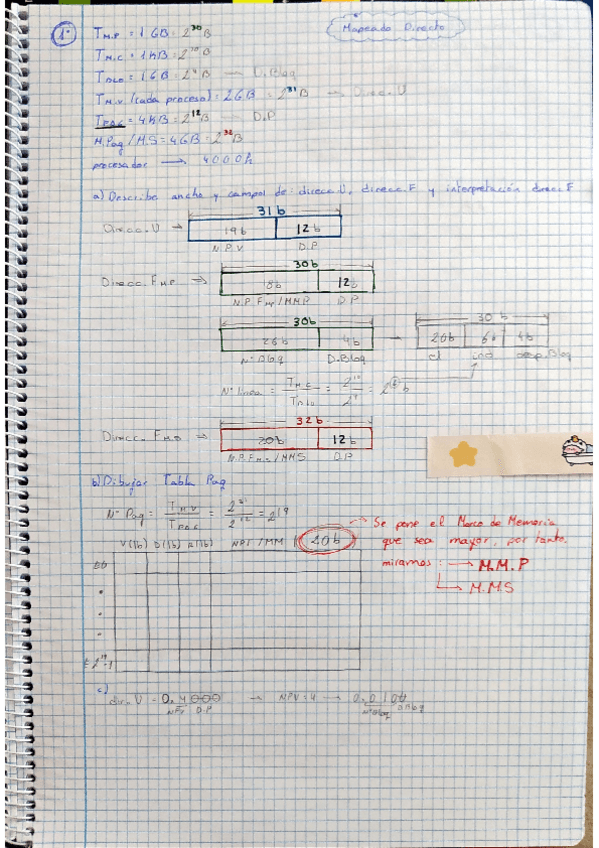 1º
Mapeado Directo
T M.P = 1 GB = 2^30 B
T M.C = 1 KB = 2^10 B
T BLO = 16B = 2^4 B → D.Bloq
T M.V (cada proceso) = 2GB = 2^31 B → Direcc.V
T PAG = 4KB = 2^12 B → D.P
M.Pag / M.S = 4GB = 2^32 B
procesador → 4000h
a) Describe ancho y campos de: direcc.V, direcc.F y interpretación direcc.F
31 b
Direcc.V → 19b 12b
N.P.V D.P
30b
Direcc.F MP → 18b 12b
N.P.F MP/MMP D.P
30b 30 b
26b 4b → 20b 6b 4b
Nº Bloq D.Bloq et ind desp.Bloq
Nº línea = T M.C / T BLO = 2^10 / 2^4 = 2^6 b
32 b
Direcc. F MS → 20b 12b
N.P.F MS/MMS D.P
b) Dibujar Tabla Pag
Nº Pag = T MV / T PAG = 2^31 / 2^12 = 2^19
V(1b) D(1b) R(1b) NPF / MM (20b)
→ Se pone el Marco de Memoria
que sea mayor, por tanto,
miramos: → M.M.P
→ M.MS
c)
dir. V = 0..4000 → NPV = 4 → 0..0100
NPV D.P NºBloq D.Bloq